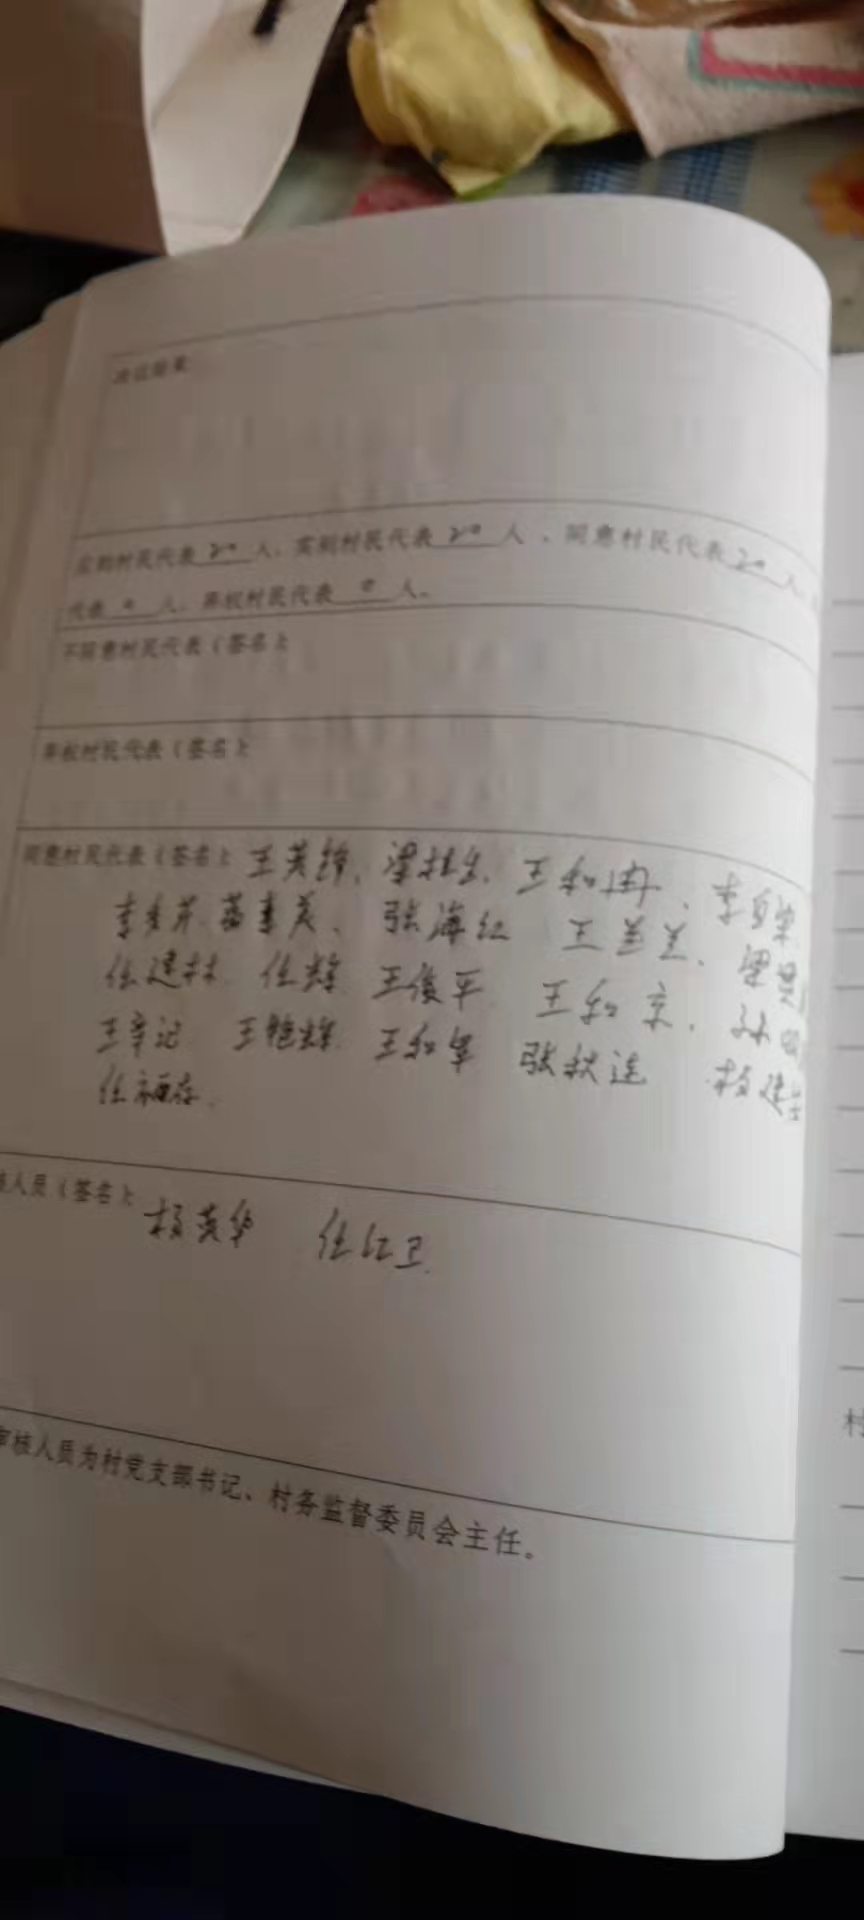 决议结果
应到村民代表20人,实到村民代表20人,同意村民代表20人,
代表0人,弃权村民代表0人。
不同意村民代表(签名):
弃权村民代表(签名):
同意村民代表(签名): 王英锋、梁桂生、王和冉、
张海红 王兰兰、
任建林 任辉 王俊平 王和京、
王章记 王艳辉 王和军 张秋连 杨建
任福存
核人员(签名): 杨英华 任红卫
审核人员为村党支部书记、村务监督委员会主任。
村